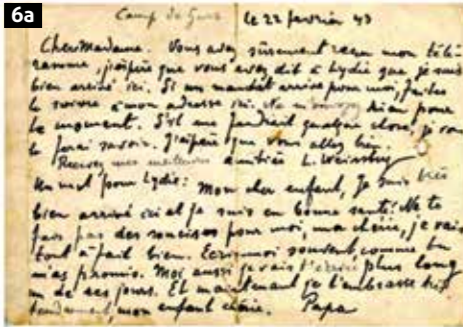 6a
Camp de Gurs le 22 février 43
Chère Madame. Vous avez sûrement reçu mon télé
gramme, j'espère que vous avez dit à Lydie que je suis
bien arrivé ici. Si un mandat arrive pour moi, faites
le suivre à mon adresse ici. Ne m'envoyez rien pour
le moment. S'il me faudrait quelque chose, je vous
le ferai savoir. J'espère que vous allez bien.
Recevez mes meilleures amitiés L.
Un mot pour Lydie: Mon cher enfant, Je suis très
bien arrivé ici et je suis en bonne santé. Ne te
fais pas des soucis pour moi, ma chérie, je vais
tout à fait bien. Ecris moi souvent, comme tu
m'as promis. Moi aussi je vais t'écrire plus long
un de ces jours. Et maintenant je t'embrasse très
tendrement, mon enfant chérie. Papa